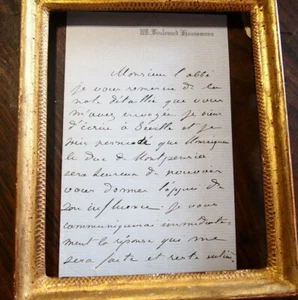 Boulevard Haussmann
Monsieur l'abbé
je vous remercie de la
note détaillée que vous
m'avez envoyée je viens
d'écrire à Séville et je
suis persuadé que Monseigneur
le duc de Montpensier
sera heureux de pouvoir
vous donner l'appui de
son influence. je vous
communiquerai immédiate-
ment la réponse que me
sera faite et reste